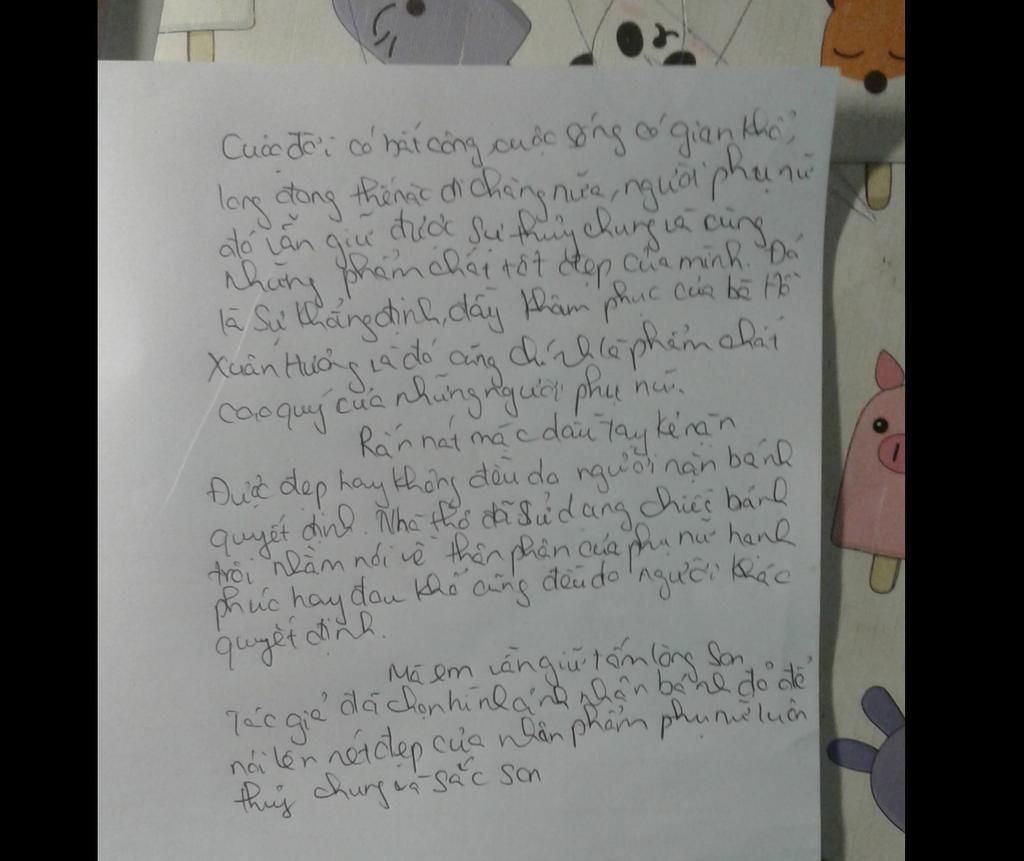 Cuộc đời có bất công, cuộc sống có gian khổ,
long đong thế nào đi chăng nữa, người phụ nữ
đó vẫn giữ được sự thủy chung và cùng
những phẩm chất tốt đẹp của mình. Đó
là sự khẳng định, đầy khâm phục của bà Hồ
Xuân Hương và đó cũng chính là phẩm chất
cao quý của những người phụ nữ.
Rắn nát mặc dầu tay kẻ nặn
Được đẹp hay không đều do người nặn bánh
quyết định. Nhà thơ đã sử dụng chiếc bánh
trôi nhằm nói về thân phận của phụ nữ hạnh
phúc hay đau khổ cũng đều do người khác
quyết định.
Mà em vẫn giữ tấm lòng son
Tác giả đã chọn hình ảnh nhân bánh đỏ để
nói lên nét đẹp của nhân phẩm phụ nữ luôn
thủy chung và sắc son